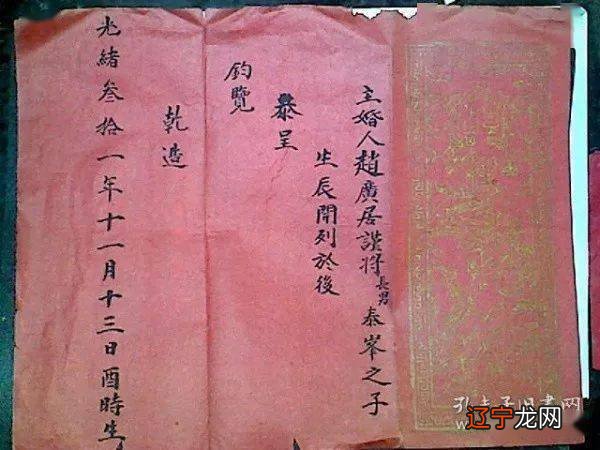 主婚人趙廣居謹將長男泰峯之子
生辰開列於後
恭呈
鈞覽
乾造
光緒叁拾一年十一月十三日酉時生
孔夫子旧书网
辽宁龙网